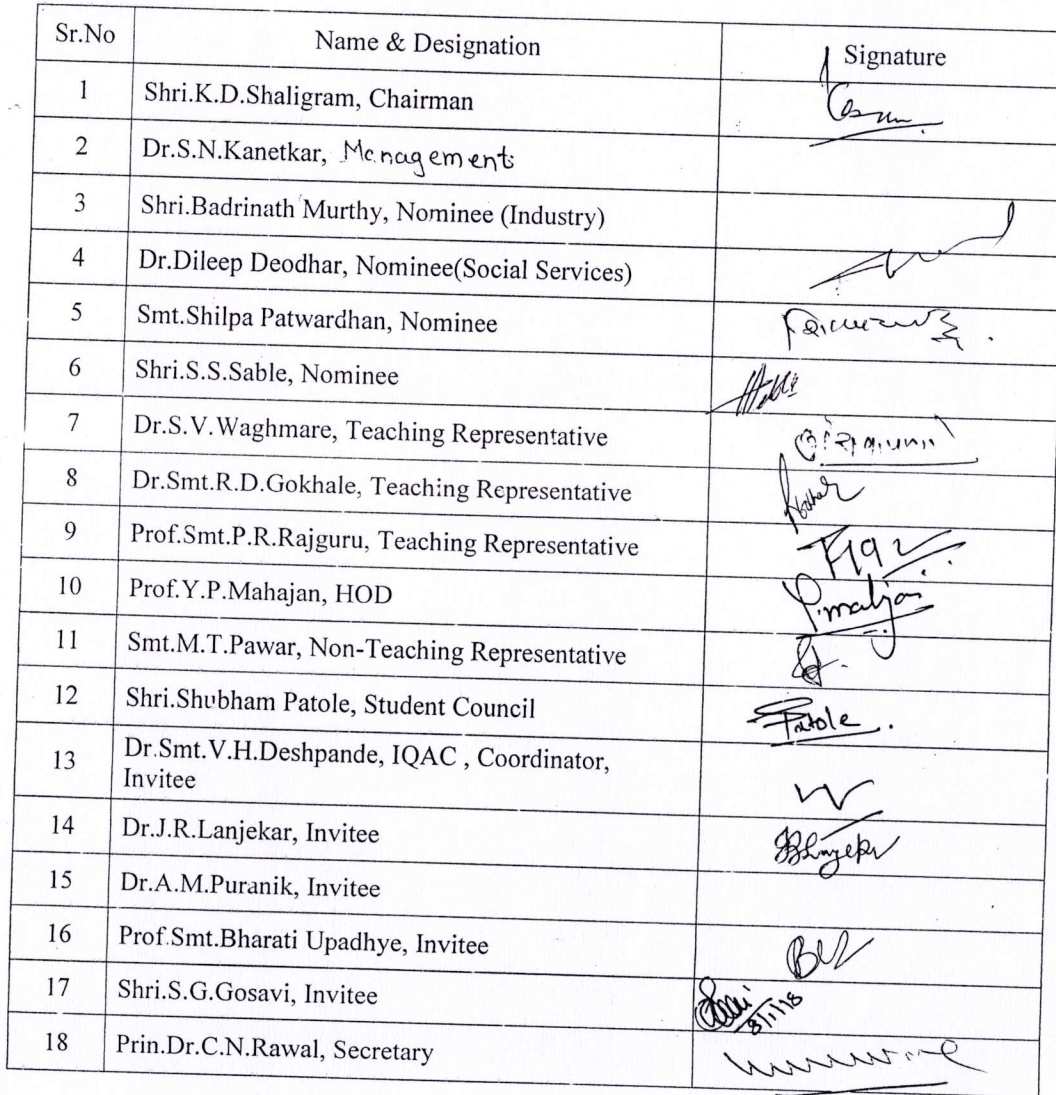 Sr.No Name & Designation Signature
1 Shri.K.D.Shaligram, Chairman
2 Dr.S.N.Kanetkar, Management
3 Shri.Badrinath Murthy, Nominee (Industry)
4 Dr.Dileep Deodhar, Nominee(Social Services)
5 Smt.Shilpa Patwardhan, Nominee
6 Shri.S.S.Sable, Nominee
7 Dr.S.V.Waghmare, Teaching Representative
8 Dr.Smt.R.D.Gokhale, Teaching Representative
9 Prof.Smt.P.R.Rajguru, Teaching Representative
10 Prof.Y.P.Mahajan, HOD
11 Smt.M.T.Pawar, Non-Teaching Representative
12 Shri.Shubham Patole, Student Council Patole
13 Dr.Smt.V.H.Deshpande, IQAC , Coordinator,
Invitee
14 Dr.J.R.Lanjekar, Invitee
15 Dr.A.M.Puranik, Invitee
16 Prof.Smt.Bharati Upadhye, Invitee
17 Shri.S.G.Gosavi, Invitee 8/1/18
18 Prin.Dr.C.N.Rawal, Secretary